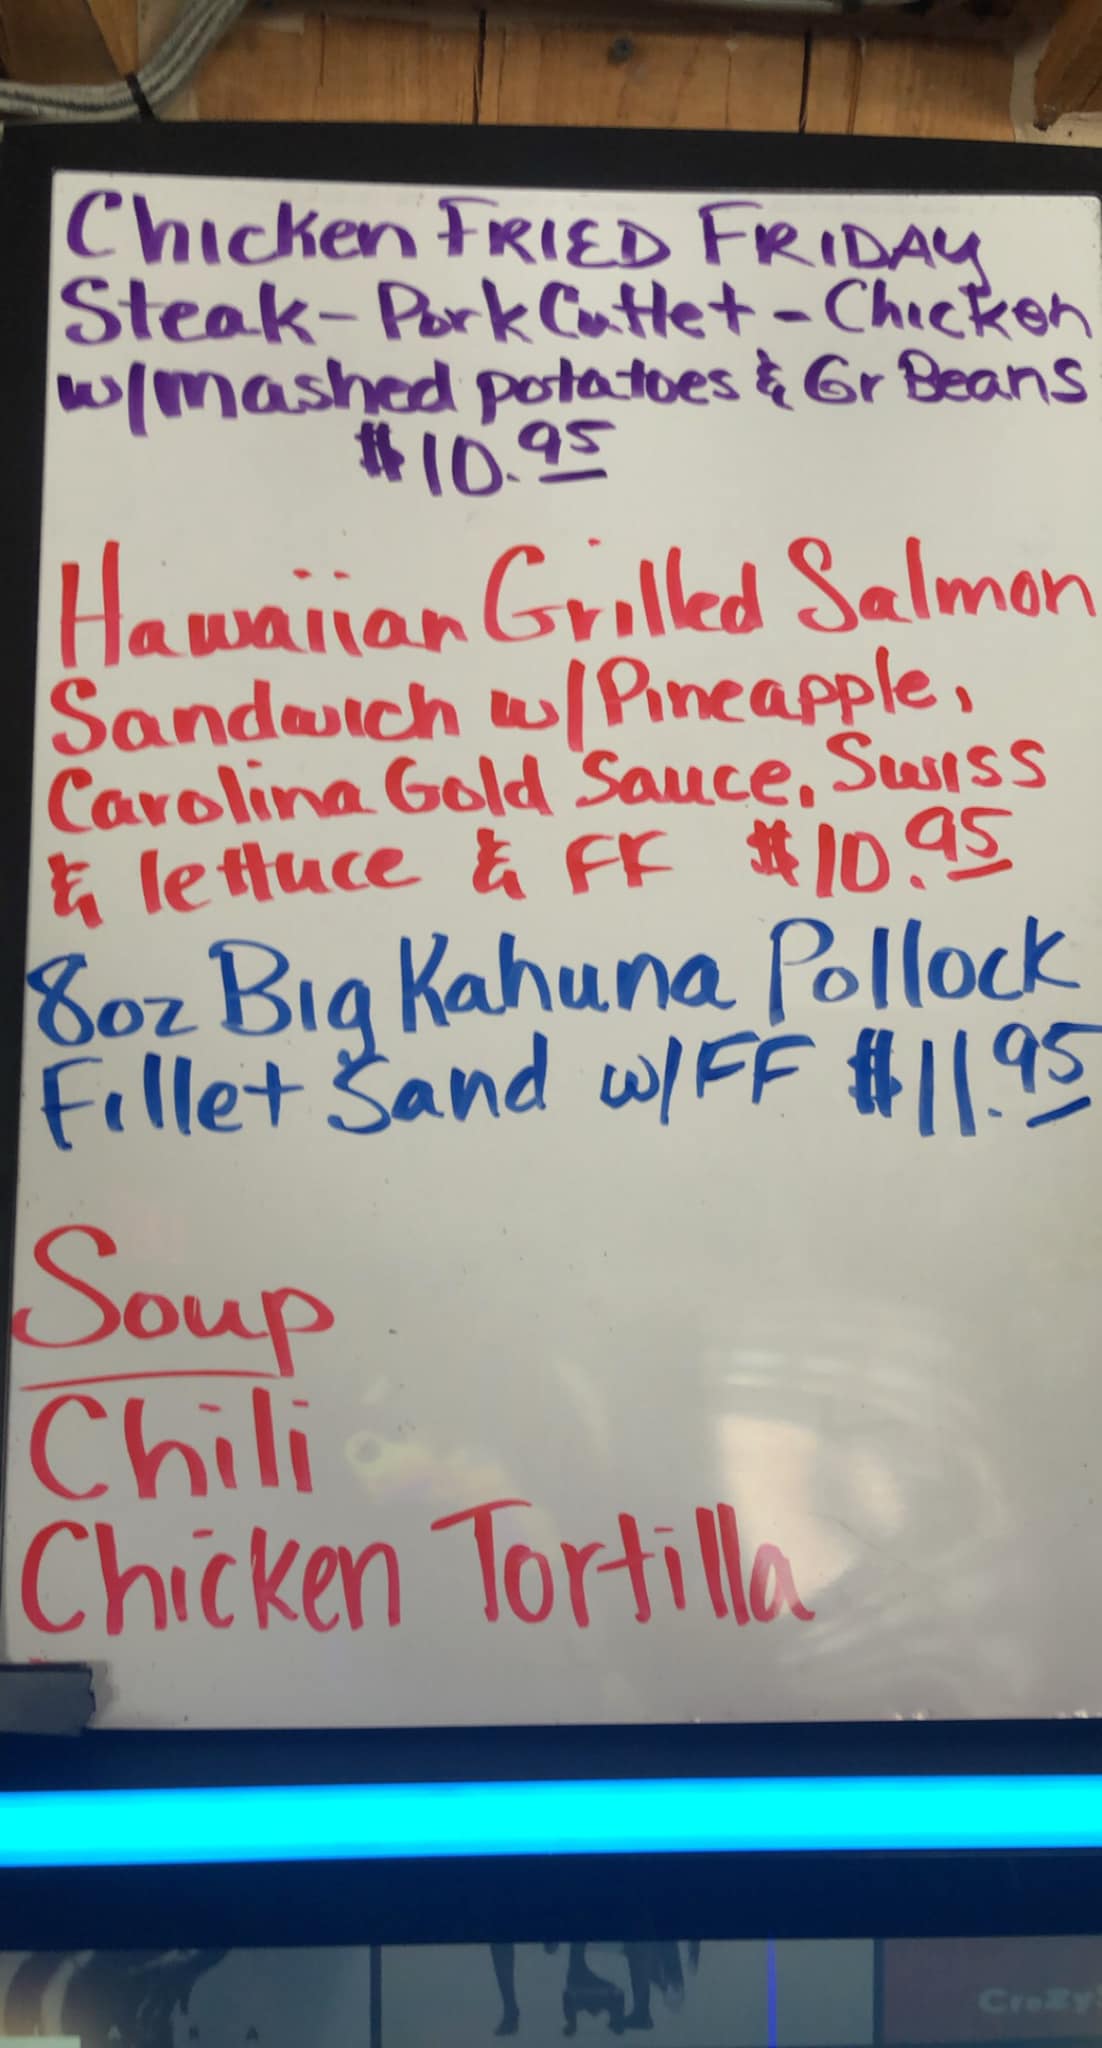 Chicken FRIED FRIDAY
Steak - Pork Cuttlet - Chicken
w/mashed potatoes & Gr Beans
$10.95
Hawaiian Grilled Salmon
Sandwich w/Pineapple,
Carolina Gold Sauce, Swiss
& lettuce & FF $10.95
8oz Big Kahuna Pollock
Fillet Sand w/FF $11.95
Soup
Chili
Chicken Tortilla